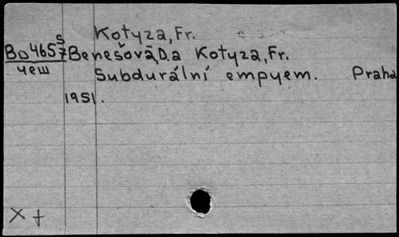 Kotyza, Fr.
Bo 4657 s
чеш
Benešová, D. a Kotyza, Fr.
Subdurální empyem. Praha
1951.
X +